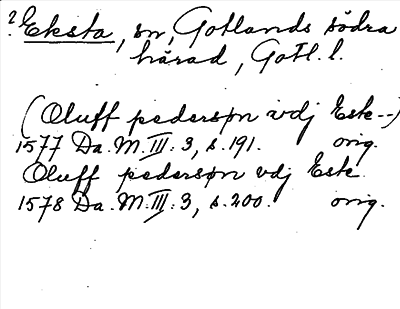 ? Eksta, sn, Gotlands södra
härad, Gotl. l.
(Oluff pedersøn vdj Este--)
1577 Da. M. III: 3, s. 191. orig.
Oluff pedersøn vdj Este.
1578 Da. M. III: 3, s. 200. orig.